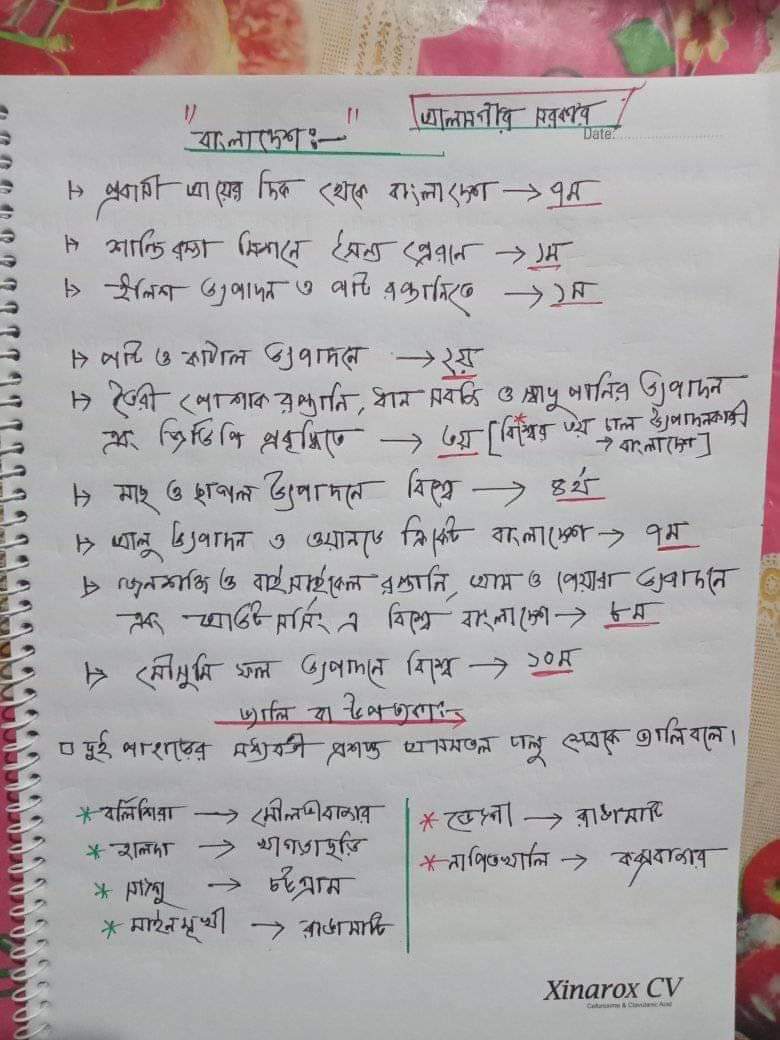 "বাংলাদেশ" :—
আলমগীর সরকার
Date:
↦ প্রবাসী আয়ের দিক থেকে বাংলাদেশ → ৭ম
↦ শান্তি রক্ষা মিশনে সৈন্য প্রেরনে → ১ম
↦ ইলিশ উৎপাদন ও পাট রপ্তানিতে → ১ম
↦ পাট ও কাঠাল উৎপাদনে → ২য়
↦ তৈরী পোশাক রপ্তানি, ধান সবজি ও স্বাদু পানির উৎপাদন
এবং জিডিপি প্রবৃদ্ধিতে → ৩য় [বিশ্বের ৩য় চাল উৎপাদনকারী
→ বাংলাদেশ]
↦ মাছ ও ছাগল উৎপাদনে বিশ্বে → ৪র্থ
↦ আলু উৎপাদন ও ওয়ানডে ক্রিকেট বাংলাদেশ → ৭ম
↦ জনশক্তি ও বাইসাইকেল রপ্তানি, আম ও পেয়ারা উৎপাদনে
এবং আউট সর্সিং এ বিশ্বে বাংলাদেশ → ৮ম
↦ মৌসুমি ফল উৎপাদনে বিশ্বে → ১০ম
ভ্যালি বা উপত্যকা:-
□ দুই পাহাড়ের মধ্যবর্তী প্রশস্ত অসমতল ঢালু ক্ষেত্রকে ভ্যালি বলে।
* বলিশিরা → মৌলভীবাজার
* হালদা → খাগড়াছড়ি
* সাঙ্গু → চট্টগ্রাম
* মাইনমুখী → রাঙামাটি
* ভেংগী → রাঙামাটি
* নাপিতখালি → কক্সবাজার
Xinarox CV
Cefuroxime & Clavulanic Acid